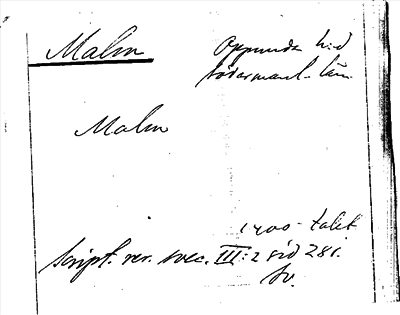 Malm
Oppunda h:d
södermanl. län
Malm
1400-talet
script. rer. svec. III:2 sid 281.
sv.